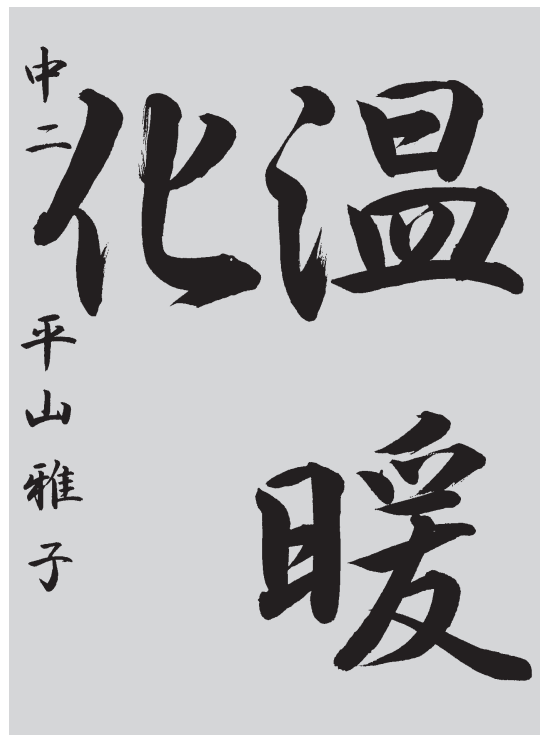 温暖
化
中二 平山雅子